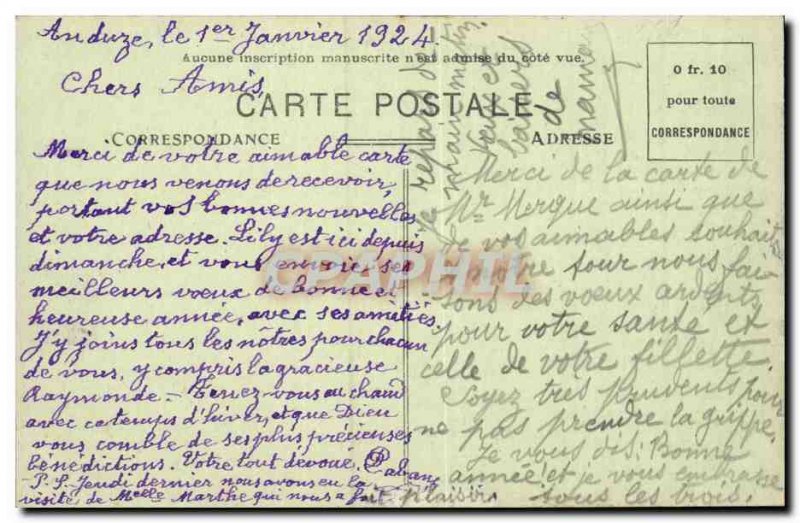 Anduze, le 1er Janvier 1924.
Aucune inscription manuscrite n'est admise du côté vue.
Chers Amis,
CARTE POSTALE
0 fr. 10
pour toute
CORRESPONDANCE
CORRESPONDANCE
ADRESSE
Merci de votre aimable carte
que nous venons de recevoir,
portant vos bonnes nouvelles
et votre adresse. Lily est ici depuis
dimanche, et vous envoie ses
meilleurs vœux de bonne et
heureuse année, avec ses amitiés
J'y joins tous les nôtres pour chacun
de vous, y compris la gracieuse
Raymonde - Tenez-vous au chaud
avec ce temps d'hiver, et que Dieu
vous comble de ses plus précieuses
bénédictions. Votre tout dévoué,
P.S. Jeudi dernier nous avons eu la
visite de Melle Marthe qui nous a fait plaisir.
Merci de la carte de
Mr ainsi que
de vos aimables souhaits
notre tour nous fai
sons des voeux ardents
pour votre sante et
celle de votre fillette.
Soyez tres prudents pour
ne pas prendre la grippe.
Je vous dis: Bonne
année! et je vous embrasse
tous les trois.
Je repars
demain matin
baisers
de
CPAPHIL